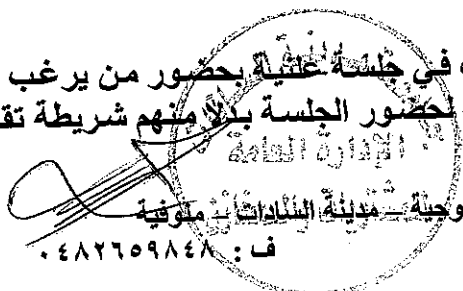 في جلسة علنية بحضور من يرغب
لحضور الجلسة بدلا منهم شريطة تق
الإدارة العامة
وحية – مدينة السادات – منوفية
ف : ٠٤٨٢٦٥٩٨٤٨